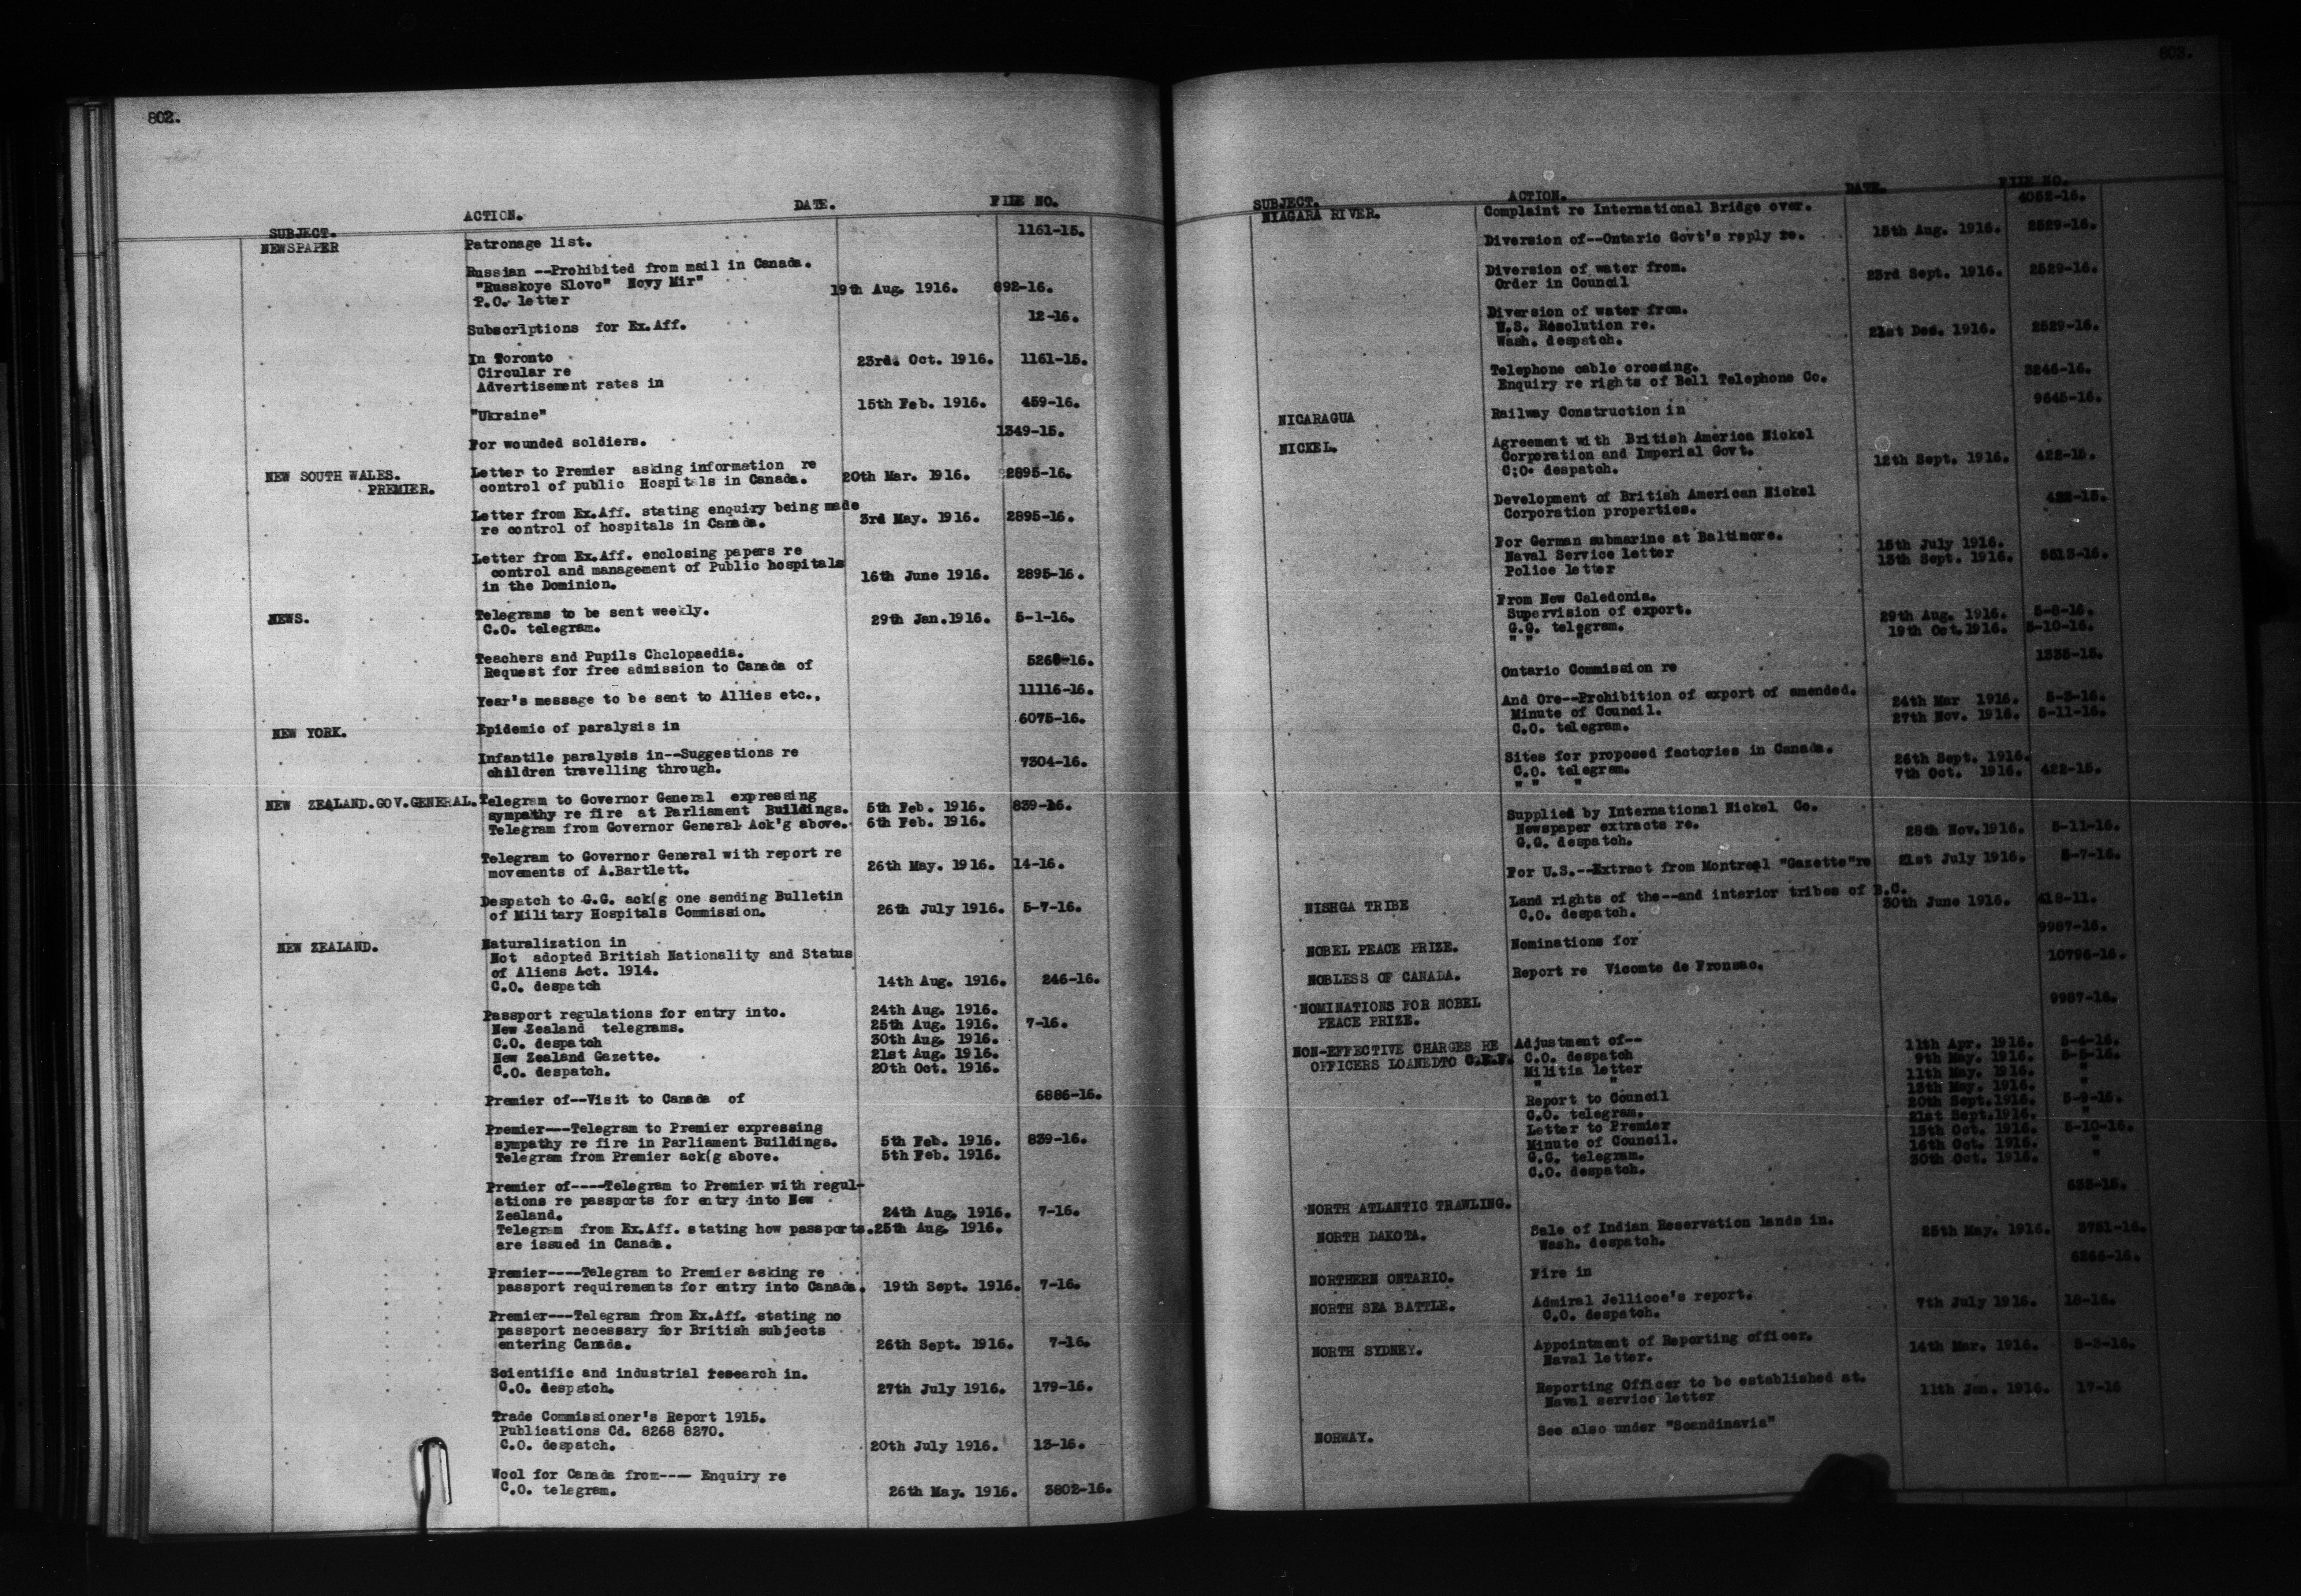 802.
SUBJECT. ACTION. DATE. FILE NO.
NEWSPAPER Patronage list. 1161-15.
Russian --Prohibited from mail in Canada.
"Russkoye Slovo" Novy Mir"
P.O. letter 19th Aug. 1916. 892-16.
Subscriptions for Ex.Aff. 12-16.
In Toronto 23rd. Oct. 1916. 1161-15.
Circular re
Advertisement rates in
"Ukraine" 15th Feb. 1916. 459-16.
For wounded soldiers. 1349-15.
NEW SOUTH WALES. Letter to Premier asking information re
PREMIER. control of public Hospitals in Canada. 20th Mar. 1916. 2895-16.
Letter from Ex.Aff. stating enquiry being made
re control of hospitals in Canada. 3rd May. 1916. 2895-16.
Letter from Ex.Aff. enclosing papers re
control and management of Public hospitals
in the Dominion. 16th June 1916. 2895-16.
NEWS. Telegrams to be sent weekly.
C.O. telegram. 29th Jan.1916. 5-1-16.
Teachers and Pupils Chclopaedia.
Request for free admission to Canada of 5268-16.
Year's message to be sent to Allies etc., 11116-16.
NEW YORK. Epidemic of paralysis in 6075-16.
Infantile paralysis in--Suggestions re
children travelling through. 7304-16.
NEW ZEALAND.GOV.GENERAL. Telegram to Governor General expressing
sympathy re fire at Parliament Buildings. 5th Feb. 1916. 839-16.
Telegram from Governor General Ack'g above. 6th Feb. 1916.
Telegram to Governor General with report re
movements of A.Bartlett. 26th May. 1916. 14-16.
Despatch to G.G. ack(g one sending Bulletin
of Military Hospitals Commission. 26th July 1916. 5-7-16.
NEW ZEALAND. Naturalization in
Not adopted British Nationality and Status
of Aliens Act. 1914.
C.O. despatch 14th Aug. 1916. 246-16.
Passport regulations for entry into. 24th Aug. 1916.
New Zealand telegrams. 25th Aug. 1916. 7-16.
C.O. despatch 30th Aug. 1916.
New Zealand Gazette. 21st Aug. 1916.
C.O. despatch. 20th Oct. 1916.
Premier of--Visit to Canada of 6886-16.
Premier---Telegram to Premier expressing
sympathy re fire in Parliament Buildings. 5th Feb. 1916. 839-16.
Telegram from Premier ack(g above. 5th Feb. 1916.
Premier of----Telegram to Premier with regul-
ations re passports for entry into New
Zealand. 24th Aug. 1916. 7-16.
Telegram from Ex.Aff. stating how passports. 25th Aug. 1916.
are issued in Canada.
Premier----Telegram to Premier asking re
passport requirements for entry into Canada. 19th Sept. 1916. 7-16.
Premier---Telegram from Ex.Aff. stating no
passport necessary for British subjects
entering Canada. 26th Sept. 1916. 7-16.
Scientific and industrial research in.
C.O. despatch. 27th July 1916. 179-16.
Trade Commissioner's Report 1915.
Publications Cd. 8268 8270.
C.O. despatch. 20th July 1916. 13-16.
Wool for Canada from---- Enquiry re
C.O. telegram. 26th May. 1916. 3802-16.
803.
SUBJECT. ACTION. DATE. FILE NO.
NIAGARA RIVER. Complaint re International Bridge over. 4052-16.
Diversion of--Ontario Govt's reply re. 15th Aug. 1916. 2529-16.
Diversion of water from. 23rd Sept. 1916. 2529-16.
Order in Council
Diversion of water from.
U.S. Resolution re. 21st Dec. 1916. 2529-16.
Wash. despatch.
Telephone cable crossing.
Enquiry re rights of Bell Telephone Co. 3246-16.
NICARAGUA Railway Construction in 9645-16.
NICKEL. Agreement with British America Nickel
Corporation and Imperial Govt.
C;O. despatch. 12th Sept. 1916. 422-15.
Development of British American Nickel
Corporation properties. 422-15.
For German submarine at Baltimore.
Naval Service letter 15th July 1916.
Police letter 13th Sept. 1916. 5513-16.
From New Caledonia.
Supervision of export.
G.G. telegram. 29th Aug. 1916. 5-8-16.
" " " 19th Oct.1916. 5-10-16.
Ontario Commission re 1335-15.
And Ore--Prohibition of export of amended.
Minute of Council. 24th Mar 1916. 5-3-16.
C.O. telegram. 27th Nov. 1916. 5-11-16.
Sites for proposed factories in Canada.
C.O. telegram. 26th Sept. 1916.
" " " 7th Oct. 1916. 422-15.
Supplied by International Nickel Co.
Newspaper extracts re.
G.G. despatch. 28th Nov.1916. 5-11-16.
For U.S.--Extract from Montreal "Gazette"re 21st July 1916. 5-7-16.
NISHGA TRIBE Land rights of the--and interior tribes of B.C.
C.O. despatch. 30th June 1916. 418-11.
NOBEL PEACE PRIZE. Nominations for 9987-16.
NOBLESS OF CANADA. Report re Vicomte de Fronsac. 10796-16.
NOMINATIONS FOR NOBEL
PEACE PRIZE. 9987-16.
NON-EFFECTIVE CHARGES RE Adjustment of--
OFFICERS LOANEDTO C.E.F. C.O. despatch 11th Apr. 1916. 5-4-16.
Militia letter 9th May. 1916. 5-5-16.
" " 11th May. 1916. "
13th May. 1916. "
Report to Council 20th Sept.1916. 5-9-16.
C.O. telegram. 21st Sept.1916. "
Letter to Premier 13th Oct. 1916. 5-10-16.
Minute of Council. 16th Oct. 1916. "
G.G. telegram. 30th Oct. 1916. "
C.O. despatch.
NORTH ATLANTIC TRAWLING. 633-15.
NORTH DAKOTA. Sale of Indian Reservation lands in.
Wash. despatch. 25th May. 1916. 3751-16.
NORTHERN ONTARIO. Fire in 6266-16.
NORTH SEA BATTLE. Admiral Jellicoe's report.
C.O. despatch. 7th July 1916. 18-16.
NORTH SYDNEY. Appointment of Reporting officer.
Naval letter. 14th Mar. 1916. 5-3-16.
Reporting Officer to be established at.
Naval service letter 11th Jan. 1916. 17-16
NORWAY. See also under "Scandinavia"